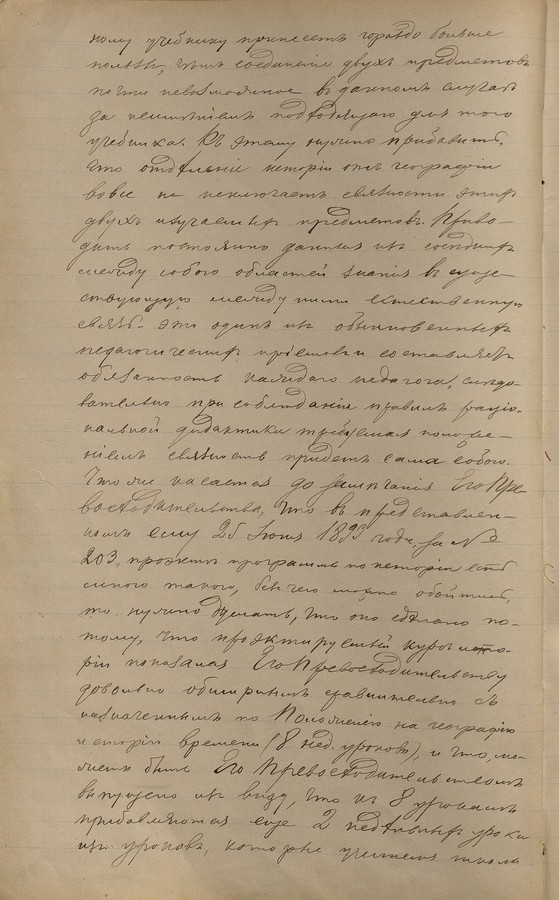 ному учебнику принесетъ гораздо больше
пользы, чѣмъ соединеніе двухъ предметовъ
почти невозможное въ данномъ случаѣ
за неимѣніемъ подходящаго для того
учебника. Къ этому нужно прибавить,
что отдѣленіе исторіи отъ географіи
вовсе не исключаетъ связности этихъ
двухъ изучаемыхъ предметовъ. Приво-
дить постоянно данныя изъ сосѣднихъ
между собою областей знанія въ суще-
ствующую между ними естественную
связь - это одинъ изъ обыкновенныхъ
педагогическихъ пріемовъ и составляетъ
обязанность каждаго педагога, слѣдо-
вательно при соблюденіи правилъ раціо-
нальной дидактики требуемая положе-
ніемъ связность придетъ сама собою.
Что же касается до замѣчанія Его Пре-
восходительства, что въ представлен-
номъ ему 25 Іюня 1893 года, за №
203, проектѣ программъ по исторіи есть
много такого, безъ чего можно обойтись,
то нужно думать, что оно сдѣлано по-
тому, что проэктируемый курсъ исто-
ріи показался Его Превосходительству
довольно обширнымъ сравнительно съ
назначеннымъ по Положенію на географію
и исторію времени (8 нед. уроковъ), и что, мо-
жетъ быть Его Превосходительствомъ
выпущено изъ виду, что къ 8 урокамъ
прибавляются еще 2 недѣльныхъ урока
изъ уроковъ, которые учителя школы